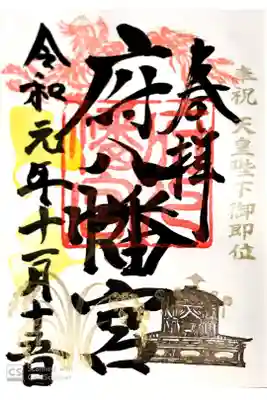 奉祝 天皇陛下御即位
奉拝
府八幡宮
令和元年十一月十五日
CS